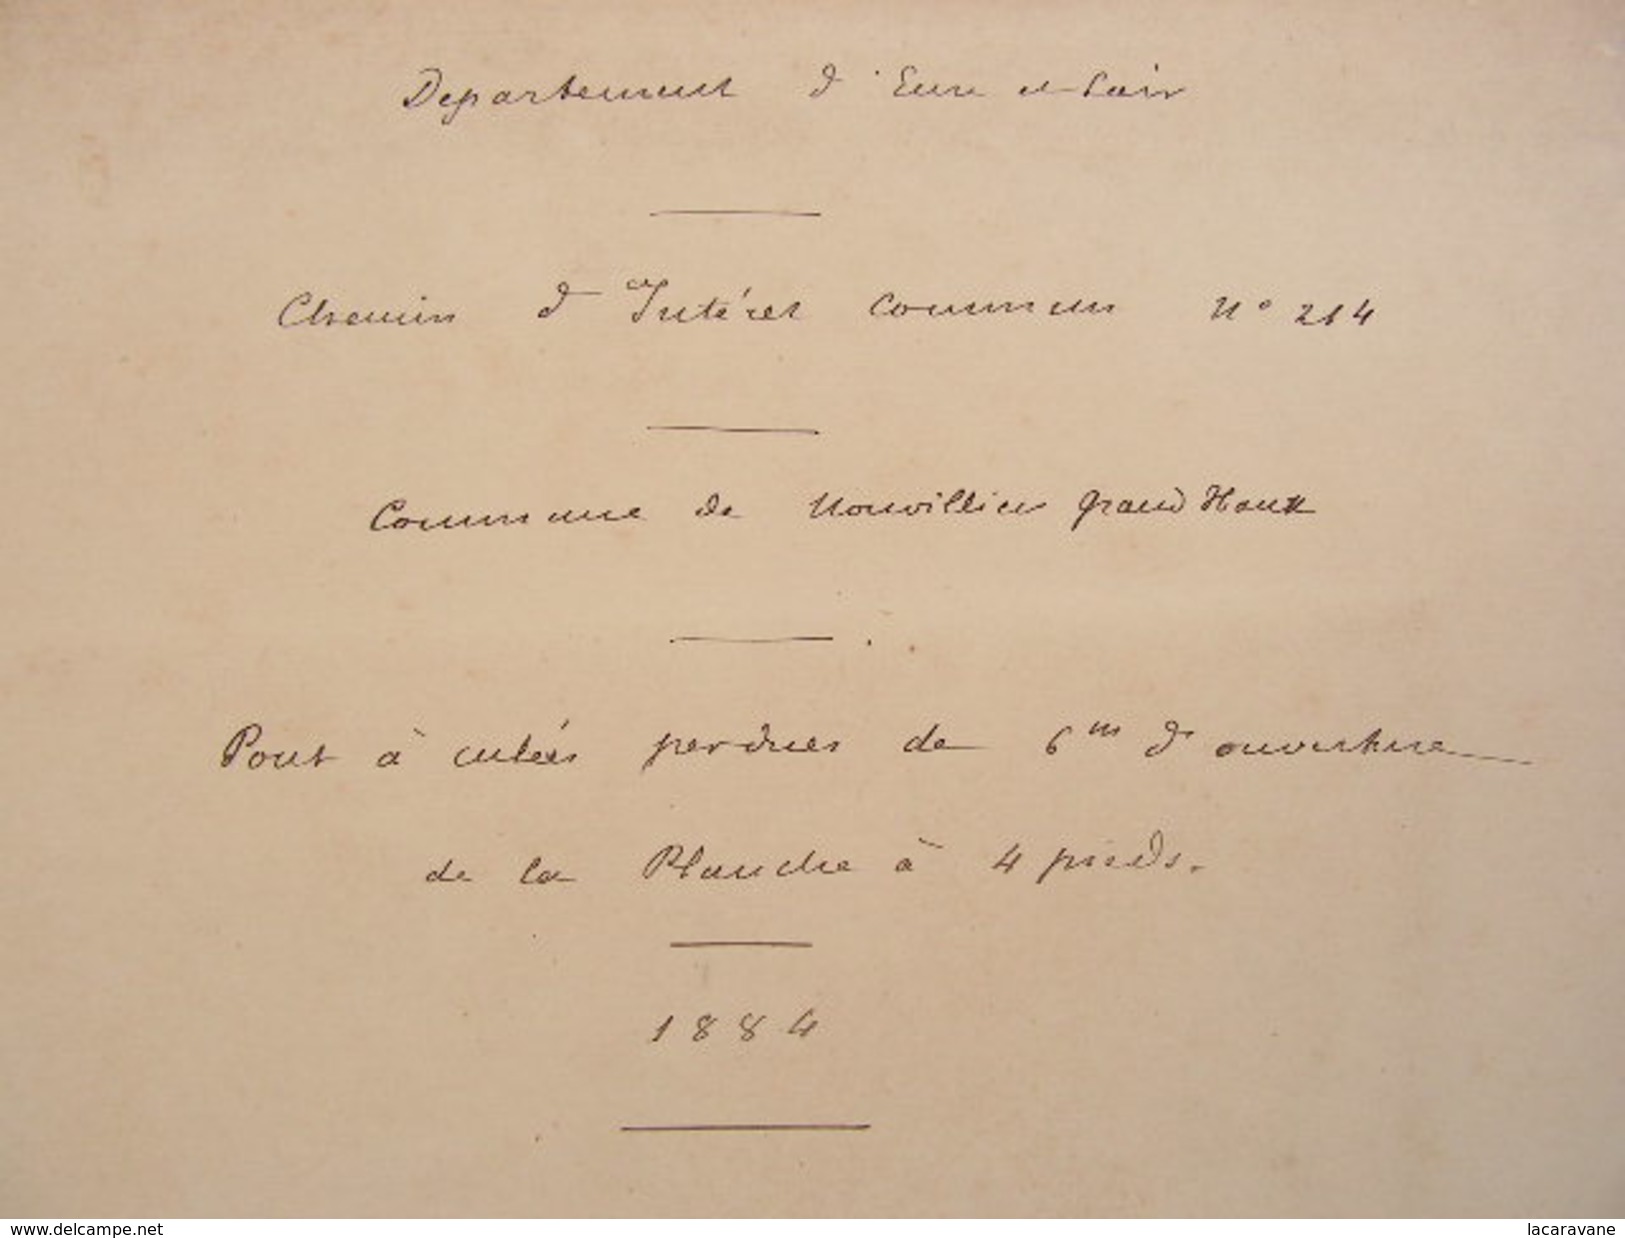 Departement d'Eure et Loir
Chemin d'Intéret commun N° 214
Commune de Nonvillier Grand Houx
Pont à culées perdues de 6m d'ouverture
de la Planche à 4 pieds.
1884
www.delcampe.net
lacaravane